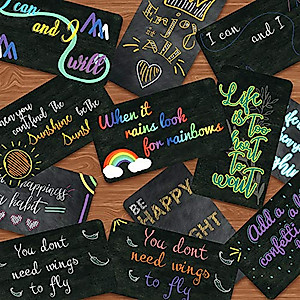 I can
and
will
Enjoy
it
All
I can and I
When you
can't find the
Sunshine be the
Sun!
When it
rains look
for rainbows
Life is
Too
hort to
wait
happiness
habit
BE
HAPPY
BRIGHT
Add a
confetti
You dont
need wings
to fly
You dont
need wings
to fly